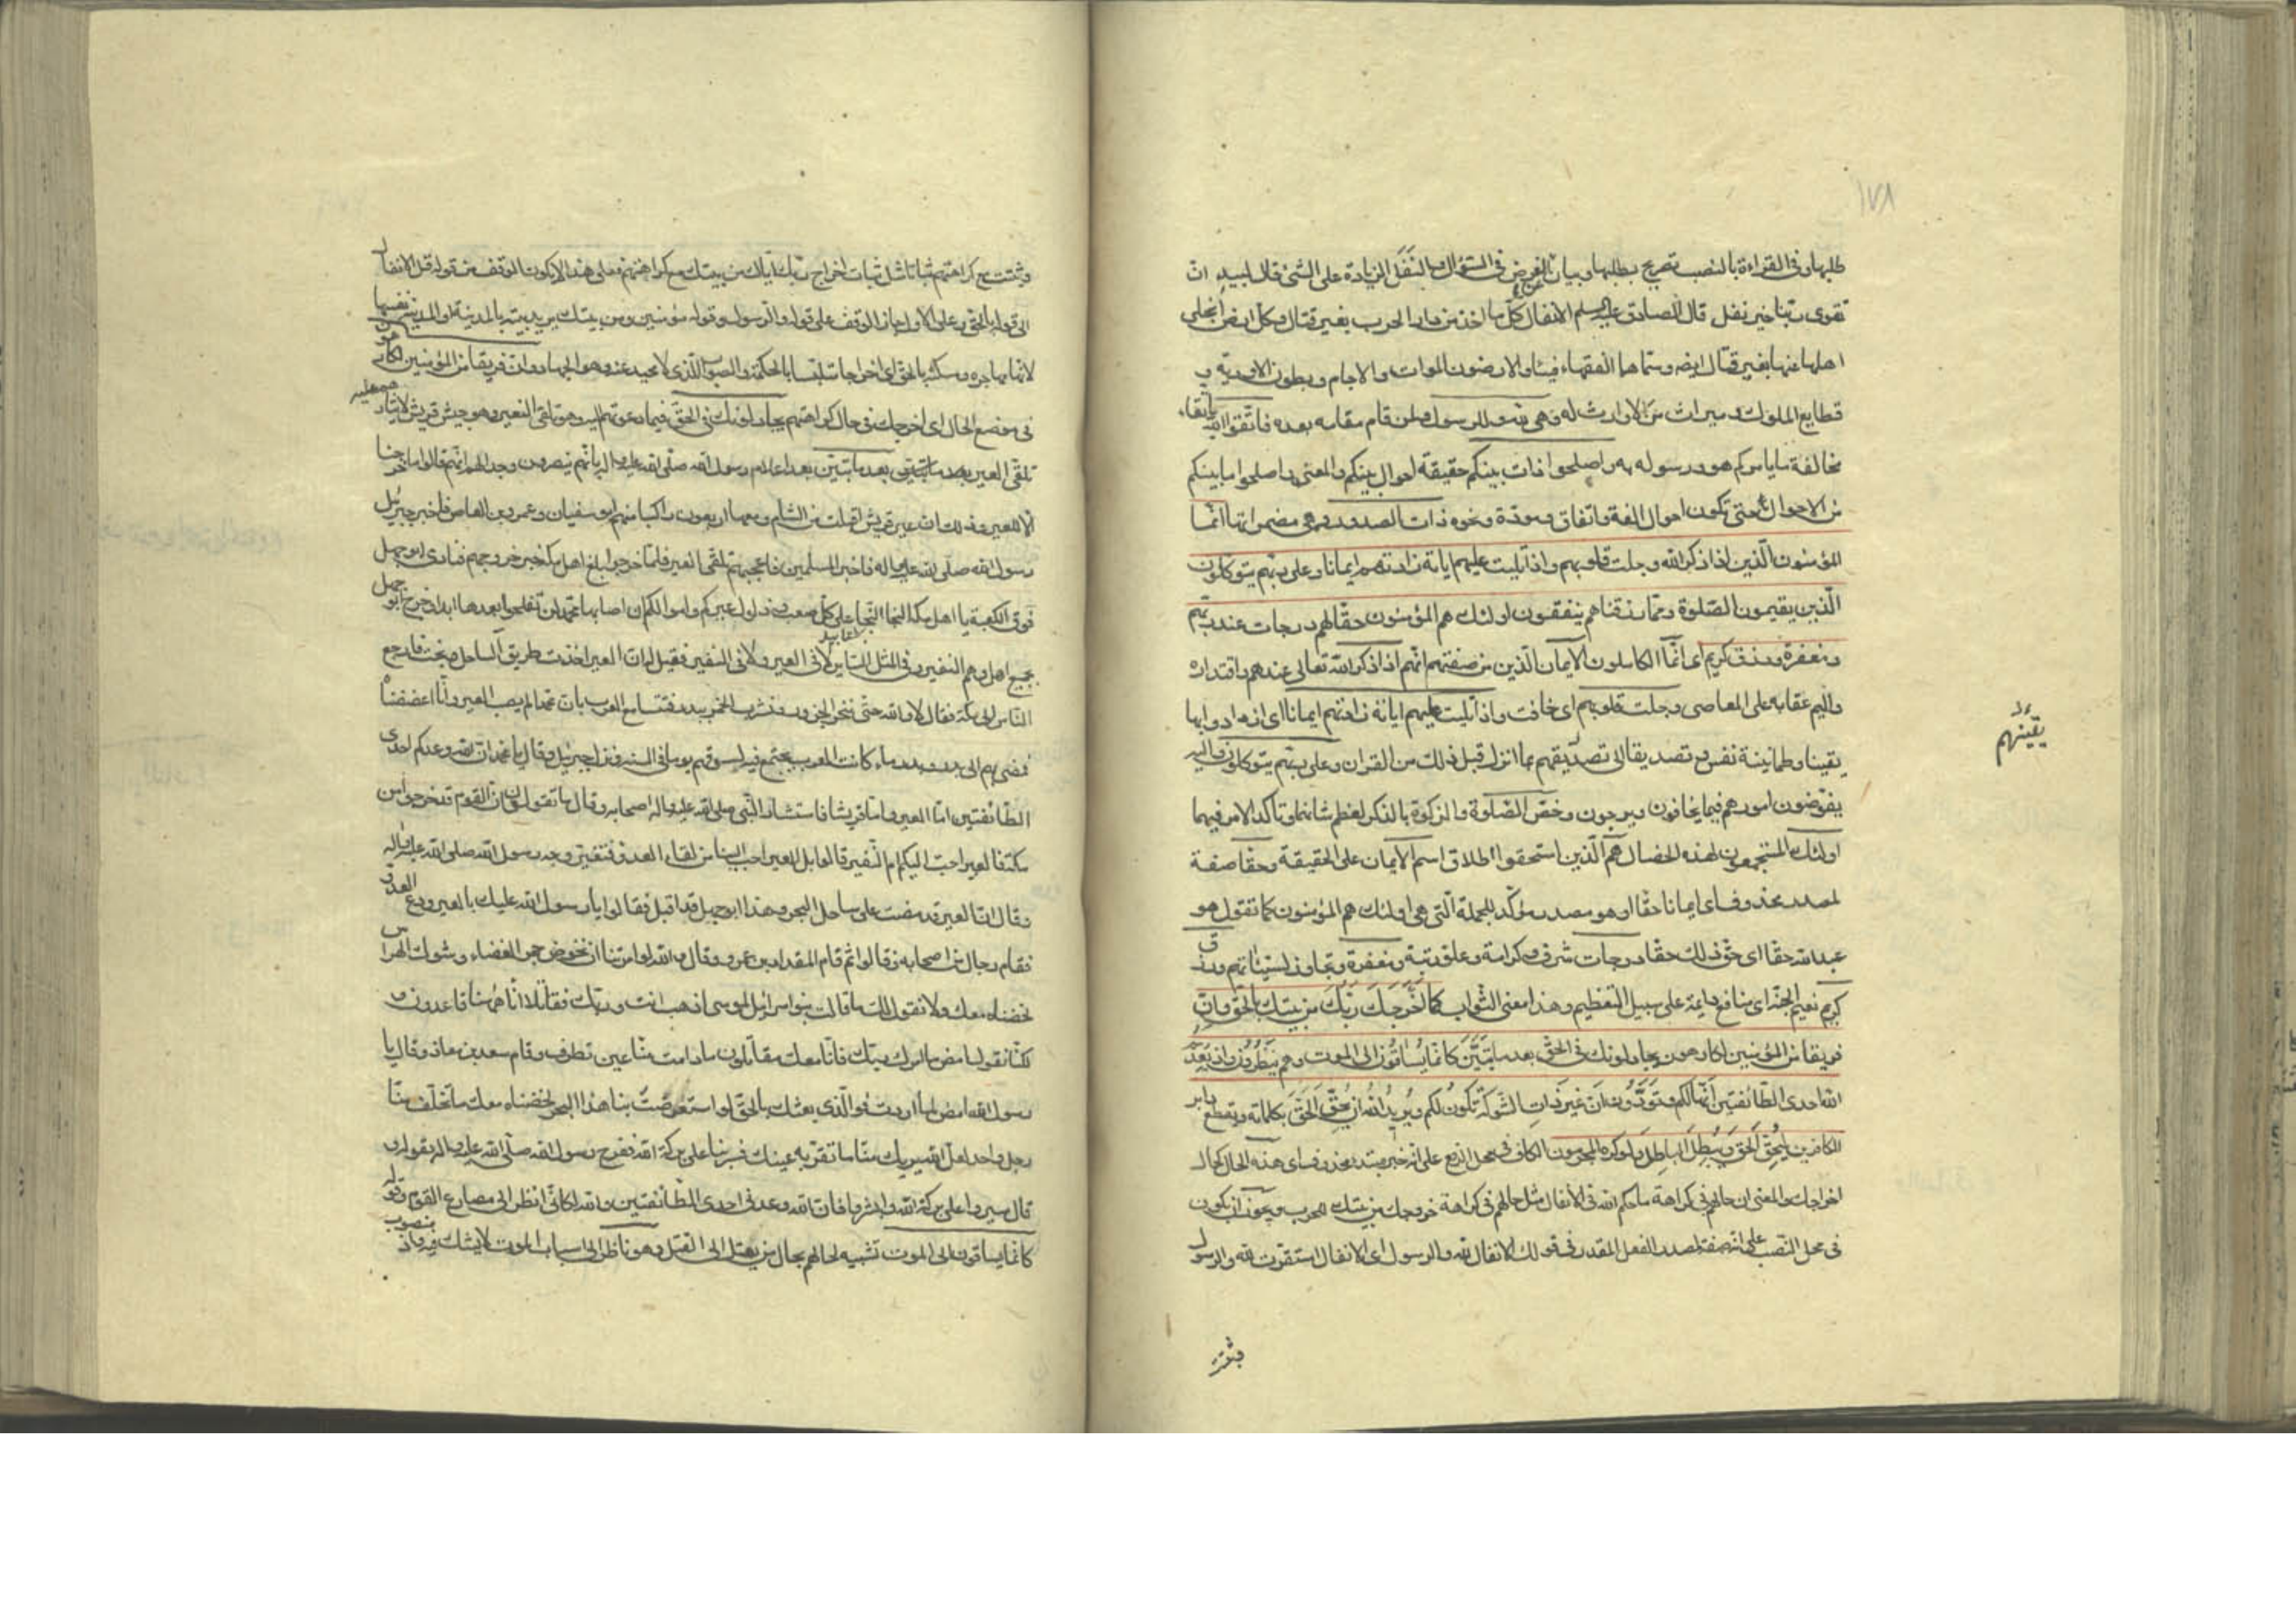 ١٧٨
طلبها وفى القراءة بالنصب تصريح بطلبها وبيان الغرض فى السؤال والنَّفَل الزيادة على الشئ قال لبيد ان
تقوى ربّنا خير نفل قال الصادق عليه السلم الانفال كلّ ما اخذ من دار الحرب بغير قتال وكل ارض انجلى
اهلها عنها بغير قتال ايضه وسمّاها الفقهاء فيئا والارضون الموات والاجام وبطون الاودية و
قطايع الملوك وميراث من لا وارث له وهى لله وللرسول ولمن قام مقامه بعده فاتّقوا الله باتقاء
مخالفة ما يامركم هو ورسوله به واصلحوا ذات بينكم حقيقة احوال بينكم والمعنى واصلحوا ما بينكم
من الاحوال حتى تكون احوال الفة واتفاق ومودّة ونحوه ذات الصدور وهى مضمراتها انّما
المؤمنون الّذين اذا ذكر الله وجلت قلوبهم واذا تليت عليهم اياته زادتهم ايمانا وعلى ربّهم يتوكلون
الّذين يقيمون الصّلوة وممّا رزقناهم ينفقون اولئك هم المؤمنون حقّا لهم درجات عند ربّهم
ومغفرة ورزق كريم اى انّما الكاملون الايمان الّذين من صفتهم انّهم اذا ذكر الله تعالى عندهم واقتداره
واليم عقابه على المعاصى وجلت قلوبهم اى خافت واذا تليت عليهم اياته زادتهم ايمانا اى ازدادوا بها
يقينا وطمانينة نفس وتصديقا الى تصديقهم بما انزل قبل ذلك من القران وعلى ربّهم يتوكلون واليه
يقينهم
يفوّضون امورهم فيما يخافون ويرجون وخصّ الصّلوة والزكوة بالذكر لعظم شانهما وتاكّد الامر فيهما
اولئك المستجمعون لهذه الخصال هم الّذين استحقوا اطلاق اسم الايمان على الحقيقة وحقّا صفة
لمصدر محذوف اى ايمانا حقّا او هو مصدر مؤكّد للجملة الّتى هى اولئك هم المؤمنون كما تقول هو
عبد الله حقّا اى حقّ ذلك حقّا درجات شرف وكرامة وعلوّ رتبة ومغفرة وتجاوز لسيّئاتهم ورزق
كريم نعيم الجنّة اى منافع دايمة على سبيل التعظيم وهذا معنى الثواب كما اَخْرَجَكَ رَبُّكَ من بيتك بالحقّ وانّ
فريقا من المؤمنين لكارهون يجادلونك فى الحقّ بعد ما تبيّن كانّما يُساقون الى الموت وهم ينظرون واذ يَعِدُكُم
الله احدى الطّائفتين اَنّها لكم وتَوَدُّونَ انّ غير ذات الشوكة تكون لكم ويُريدُ اللهُ ان يُحِقَّ الحقّ بكلماته ويقطع دابر
الكافرين ليُحِقَّ الحقّ ويُبطِلَ الباطل ولو كره المجرمون الكاف فى محل الرفع على انّه خبر مبتدء محذوف اى هذه الحال كحال
اخراجك والمعنى ان حالهم فى كراهة ما حكم الله فى الانفال مثل حالهم فى كراهة خروجك من بيتك للحرب ويجوز ان يكون
فى محل النّصب على انّه صفة لمصدر الفعل المقدر فى قوله الانفال لله والرسول اى الانفال استقرّت لله والرسول
وثبتت
وثبتت مع كراهتهم ثباتا مثل ثبات اخراج ربّك ايّاك من بيتك مع كراهتهم فعلى هذا لا يكون الوقف من قوله قل الانفال
الى قوله بالحقّ وعلى الاول جاز الوقف على قوله والرسول وقوله مؤمنين ومن بيتك يريد بيته بالمدينة او المدينة نفسها
لانّها مهاجره ومسكنه بالحقّ اى اخراجا متلبّسا بالحكمة والصواب الّذى لا محيد عنه وهو الجهاد وان فريقا من المؤمنين لكارهون
فى موضع الحال اى اخرجك فى حال كراهتهم يجادلونك فى الحقّ فيما دعوتهم اليه وهو تلقّى النفير وهو جيش قريش لايثارهم عليه
تلقّى العير بعد ما تبيّن بعد اعلام رسول الله صلّى الله عليه واله بانّهم ينصرون وجدالهم انّهم قالوا ما خرجنا
الا للعير وذلك ان عير قريش اقبلت من الشام ومعها اربعون راكبا منهم ابو سفيان وعمرو بن العاص فاخبر جبرئيل
رسول الله صلّى الله عليه واله فاخبر المسلمين فاعجبهم تلقّى العير فلمّا خرجوا بلغ اهل مكة خبر خروجهم فنادى ابو جهل
فوق الكعبة يا اهل مكة النجا النّجا على كلّ صعب وذلول عيركم واموالكم ان اصابها محمّد لن تفلحوا بعدها ابدا فخرج ابو جهل
بجميع اهل مكة وهم النفير وفى المثل السّاير لا فى العير ولا فى النفير فقيل له ان العير اخذت طريق الساحل ونجت فارجع
النّاس الى مكّة فقال لا والله حتّى ننحر الجزور ونشرب الخمر ببدر فتتسامع العرب بان محمدا لم يصب العير وانّا اعضضناه
فمضى بهم الى بدر وبدر ماء كانت العرب تجتمع فيه لسوقهم يوما فى السنة ونزل جبرئيل وقال يا محمّد ان الله وعدكم احدى
الطّائفتين امّا العير وامّا قريشا فاستشار النّبى صلى الله عليه واله اصحابه وقال ما تقولون ان القوم قد خرجوا من
مكة فالعير احبّ اليكم ام النّفير قالوا بل العير احب الينا من لقاء العدوّ فتغيّر وجه رسول الله صلى الله عليه واله
وقال انّ العير قد مضت على ساحل البحر وهذا ابو جهل قد اقبل فقالوا يا رسول الله عليك بالعير ودع العدوّ
فقام رجال من اصحابه وقالوا ثم قام المقداد بن عمرو وقال والله لو امرتنا ان نخوض جمر الغضاء وشوك الهراس
لخضناه معك ولا نقول لك ما قالت بنو اسرائيل لموسى اذهب انت وربّك فقاتلا انّا ههنا قاعدون و
لكنّا نقول امض لما امرك ربّك فانّا معك مقاتلون مادامت منّا عين تطرف وقام سعد بن معاذ وقال يا
رسول الله امض لما اردت فوالّذى بعثك بالحقّ لو استعرضت بنا هذا البحر لخضناه معك ما تخلّف منّا
رجل واحد لعلّ الله يريك منّا ما تقرّ به عينك فسر بنا على بركة الله ففرح رسول الله صلّى الله عليه واله بقوله و
قال سيروا على بركة الله وابشروا فان الله وعدنى احدى الطّائفتين والله لكانّى انظر الى مصارع القوم وقوله
كانّما يساقون الى الموت تشبيه لحالهم بحال من يعتل الى القتل وهو ناظر الى اسباب الموت لا يشك فيه واذ منصوب